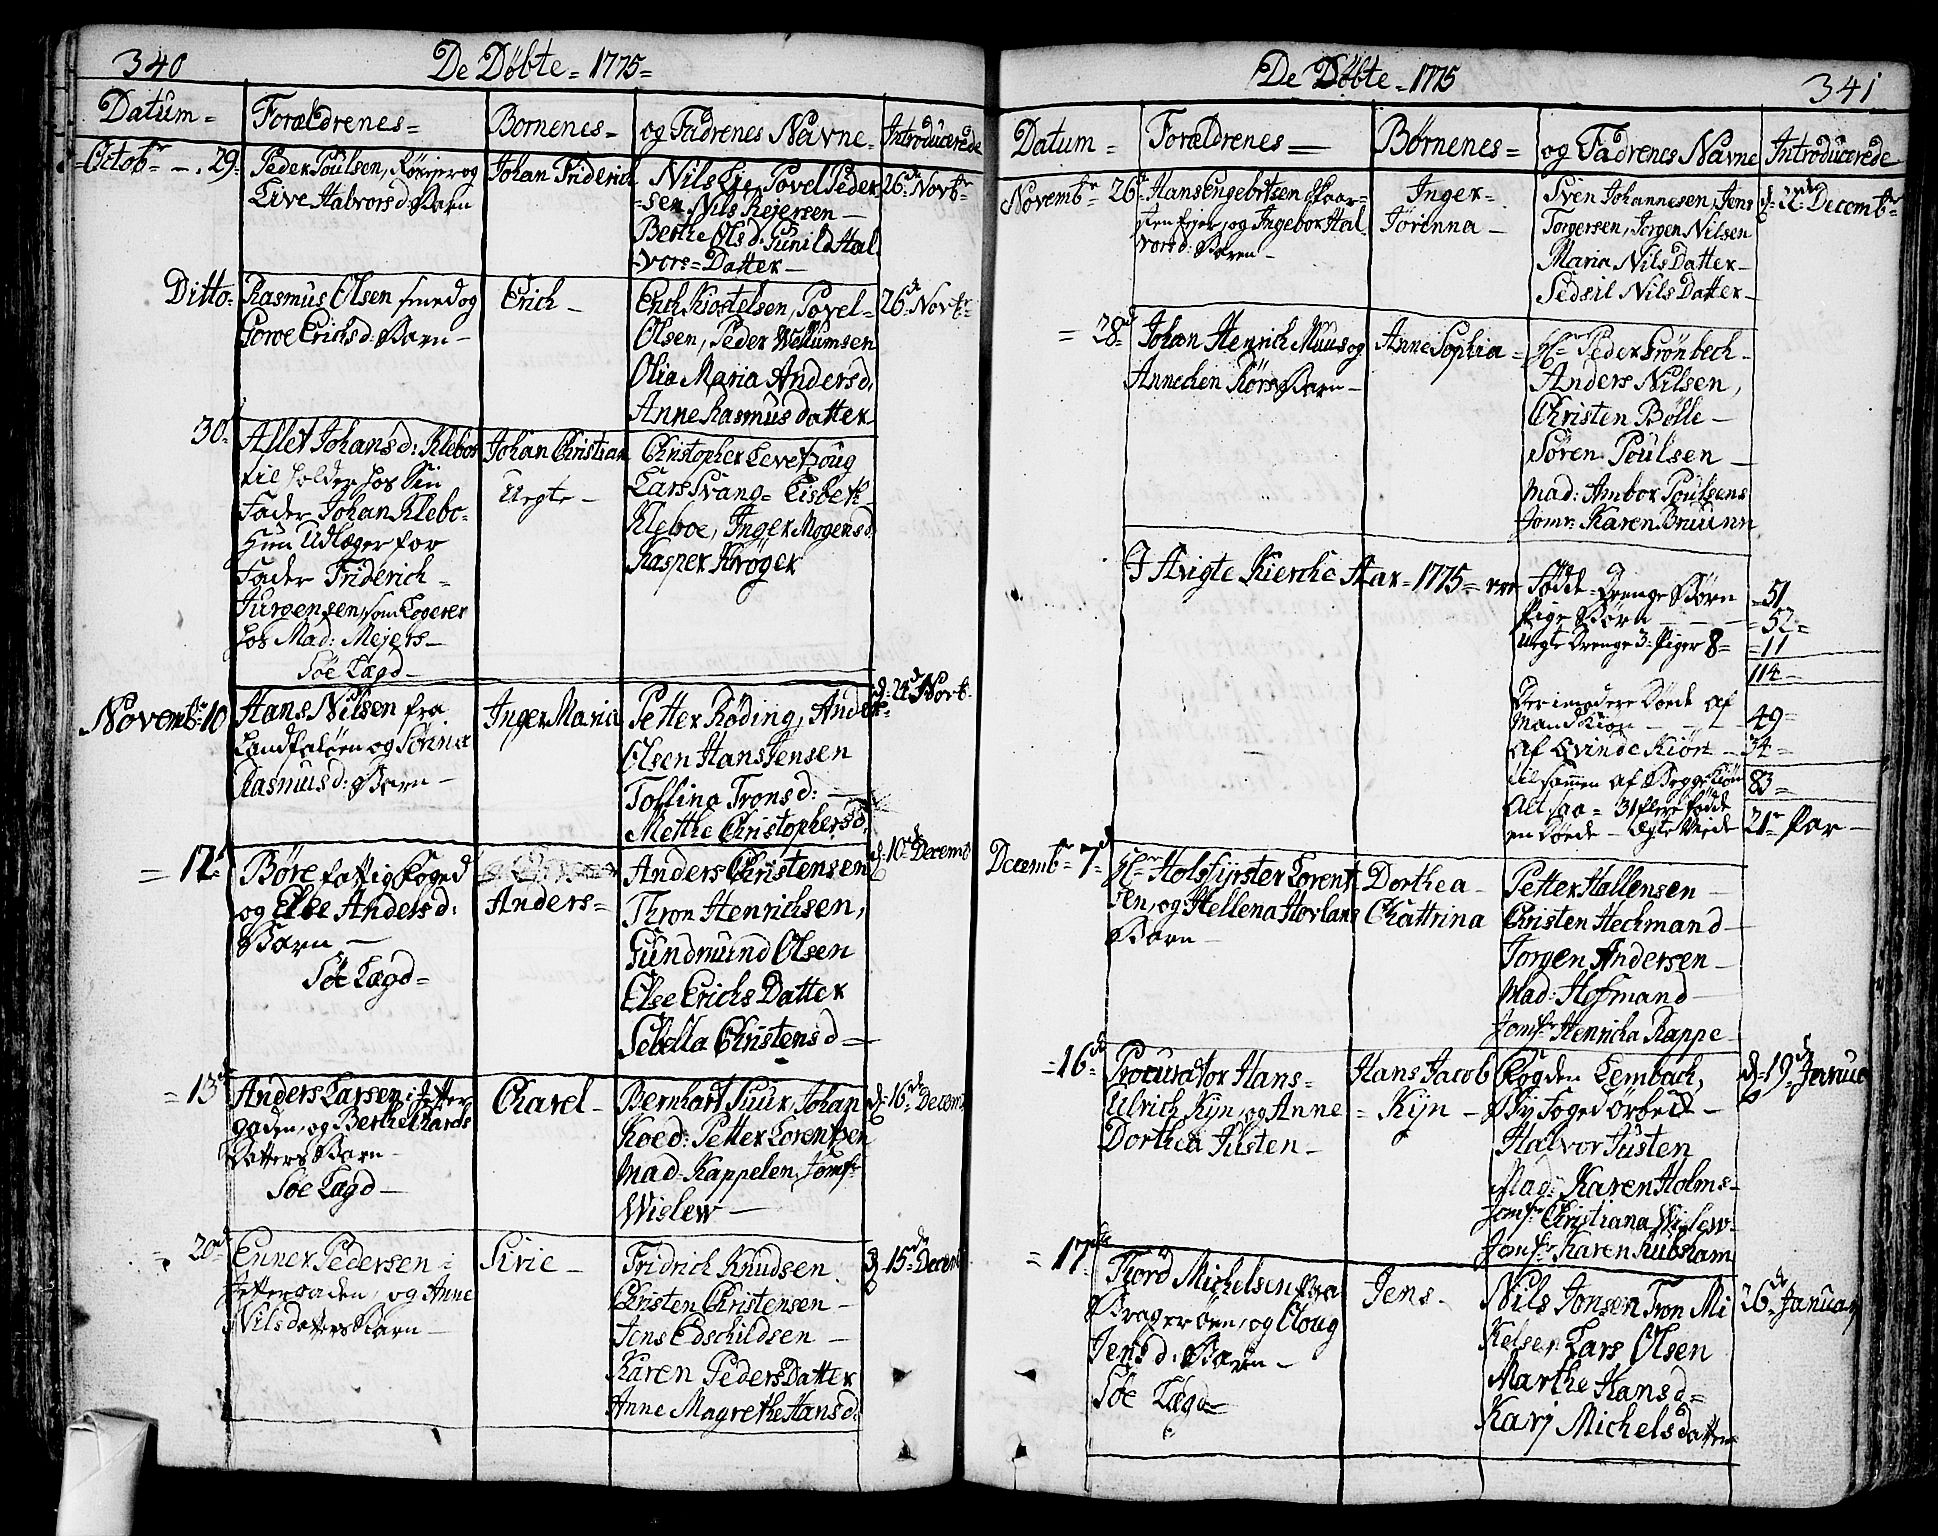 340
De Döbte = 1775 =
Datum = Forældrenes = Bornenes = og Fadrenes Navne = Introducerede
Octobr 29. Peder Poulsen, og
Live Halvors d: Barn
Johan Friderich
Nils Povel Peder
sen, Nils Rejersen
Berthe Ols d: Gunild Hal
vors = Datter
26 Novbr
Ditto = Rasmus Olsen smed og
Erichs d: Barn
Erich
Erich Povel
Olsen, Peder
Olia Maria Anders d.
Anne Rasmus datter
26 Novbr
30 Johans d: Klebo
Sin
Fader Johan Klebo
Hun Udlæger for
Fader Friderich
Jurgensen, som Logerer
hos Mad: Mejers
Söe Lægd
Johan Christian
Uegte
Christopher
Lars Svang = Lisbeth
Kleboe, Inger Mogens d
Kasper Kröger
Novembr 10 Hans Nilsen fra
Landfalöen og
Rasmus d: Barn
Inger Maria
Petter Röding, Anders
Olsen Hans Jensen
Tollina Trons d:
Methe Christophers d.
d. 24 Novb.
= 12 Böre fattig Foged
og Else Anders d:
Barn
Söe Lægd =
Anders =
Anders Christensen
Thron Henrichsen,
Gundmund Olsen
Else Erichs Datter
Sebella Christens d
d. 10 Decemb
= 13 Anders Larsen i Tetter
gaden, og Berthe
Datters Barn
Söe Lægd
Charel
Bernhart Suur, Johan
Koed: Petter Lorentzen
Mad: Kappelen, Jomfr
Wislew
d. 16 Decemb
20 Enner Pedersen i
Tettergaden, og Anne
Nils datters Barn
Sirie
Fridrich Knudsen
Christen Christensen
Jens Edschildsen
Karen Peders Datter
Anne Magrethe Hans d:
d. 15 Decemb
De Döbte = 1775
341
Datum = Forældrenes Børnenes = og Fadrenes Navne Introducerede
Novembr 26 Hans Engebritsen Skaar-
og Ingebor Hal
vors d: Barn
Inger
Jörinna
Sven Johannesen, Jens
Torgersen, Jorgen Nilsen
Maria Nils Datter
Sedsil Nils Datter
d. 22 Decembr
= 28 Johan Henrich Muus og
Annechen Rörs Barn
Anne Sophia =
Hr Peder Grönbech
Anders Nilsen,
Christen Bölle
Sören Poulsen
Mad: Ambor Poulsens
Jomr: Karen Bruunn
I Aar = 1775 =
Födde = Drenge Börn = 51
Pige Börn = 52 =
Uegte Drenge 3 = Piger 8 = = 11
114
Döede af
Mand Kiön 49 =
af Qvinde Kiön 34 =
tilsammen af Begge Kiön 83
Alt saa = 31 flere födde
en Döede Ægte Viede 21 Par
Decembr 7 Hr Lorent
sen, og Hellena
Barn
Dorthea
Chattrina
Petter Hallensen
Christen Heckmand
Jorgen Andersen
Mad: Hofmand
Jomfr Henricka Rappe
= 16 Procurator Hans
Ulrich Kyn, og Anne
Dorthea Jilsten
Hans Jacob
= Kyn
Lembach,
By Foged Örbeck
Halvor Justen
Mad: Karen Holms
Jomfr Christiana Wislew
Jomfr Karen
d. 19 Janua
= 17 Tjord Michelsen fra
Brageröen, og
Jens d: Barn
Söe Lægd
Jens
Nils Jonsen Tron Mi
Kelsen Lars Olsen
Marthe Hans d
Karj Michels datter
26 Januarj